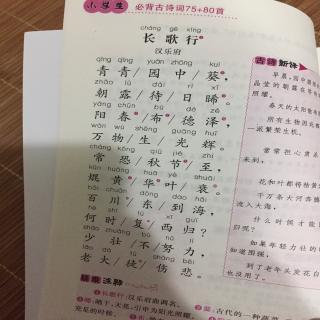 小学生 必背古诗词75+80首
cháng gē xíng
长歌行
汉乐府
qīng qīng yuán zhōng kuí
青青/园中/葵，
zhāo lù dài rì xī
朝露/待/日晞。
yáng chūn bù dé zé
阳春/布/德泽，
wàn wù shēng guāng huī
万物/生/光辉。
cháng kǒng qiū jié zhì
常恐/秋节/至，
kūn huáng huā yè shuāi
焜黄/华叶/衰。
bǎi chuān dōng dào hǎi
百川/东/到海，
hé shí fù xī guī
何时/复/西归？
shào zhuàng bù nǔ lì
少壮/不/努力，
lǎo dà tú shāng bēi
老大/徒/伤悲。
古诗新译
早晨，园中
晶莹的朝露在等待
照耀。
春天的太阳
一派繁荣生机。
常常担心
未到，
花和叶都将枯
千万条大河
流入大海，
什么时候才能
归？
如果年轻力壮的
知道图强，
到了老年头发花白
也没用了。
①长歌行：汉乐府曲调名。